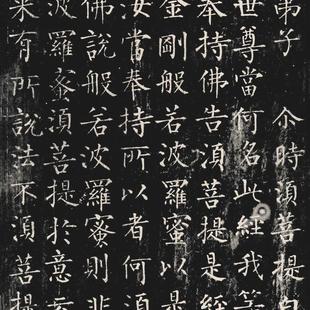 弟子 尒時須菩提白
世尊當何名此經我等
奉持佛告須菩提是經
金剛般若波羅蜜以是
汝當奉持所以者何須
佛說般若波羅蜜則非
波羅蜜須菩提於意云
来有所說法不須菩提